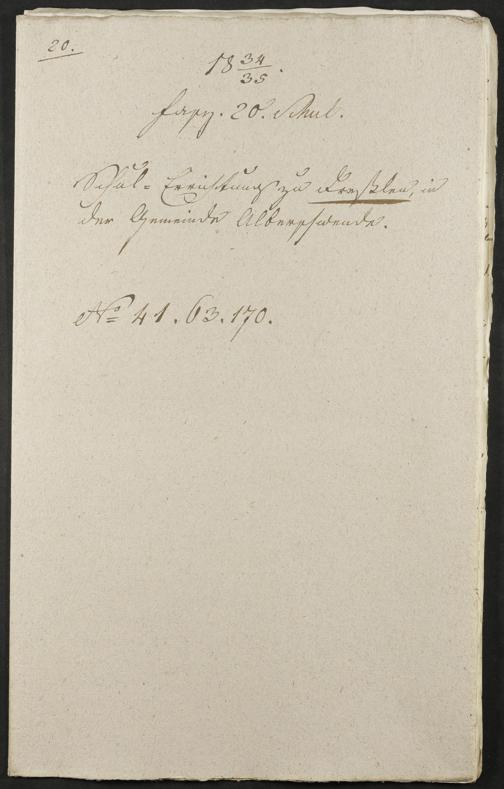 20.
18 34/35.
Fasz. 20. Schul.
Schul-Errichtung zu Dreßlen, in
der Gemeinde Alberschwende.
No 41. 63. 170.